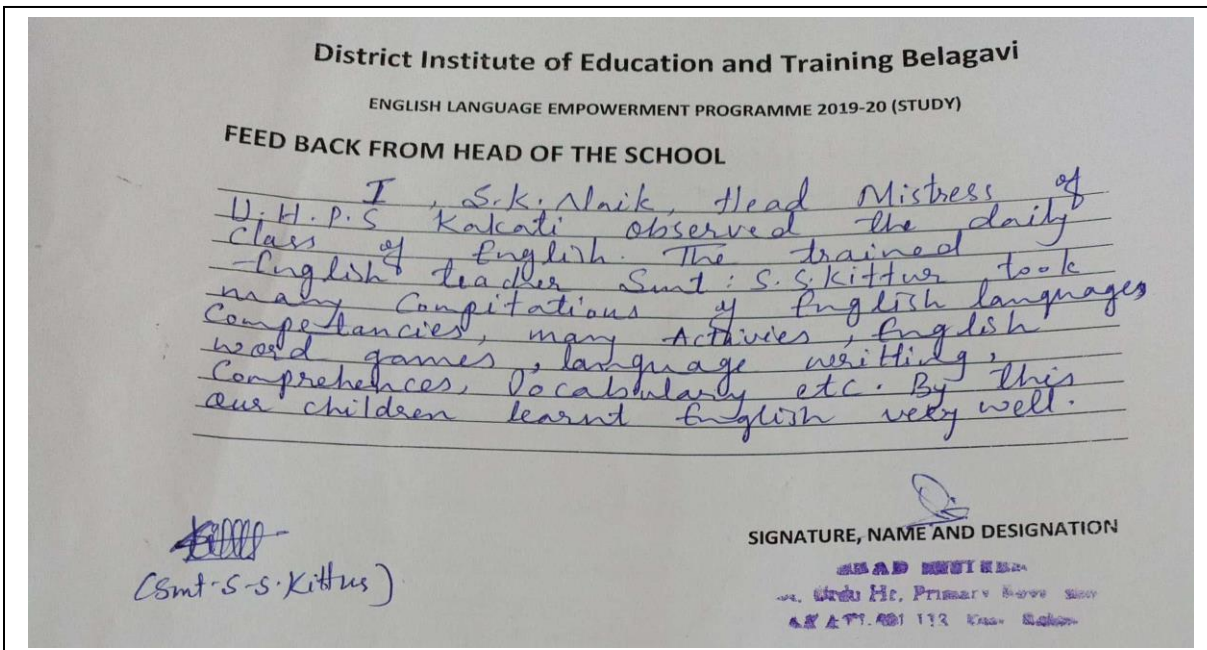 District Institute of Education and Training Belagavi
ENGLISH LANGUAGE EMPOWERMENT PROGRAMME 2019-20 (STUDY)
FEED BACK FROM HEAD OF THE SCHOOL
I, S.K. Naik, Head Mistress of
U.H.P.S Kakati observed the daily
class of English. The trained
English teacher Smt: S.S.Kittur took
many Compitations of English languages
Competancies, many Activies, English
word games, language writting,
Comprehences, Vocabulary etc. By this
our children learnt English very well.
SIGNATURE, NAME AND DESIGNATION
(Smt-S-S-Kittur)
Urdu Hr. Primary